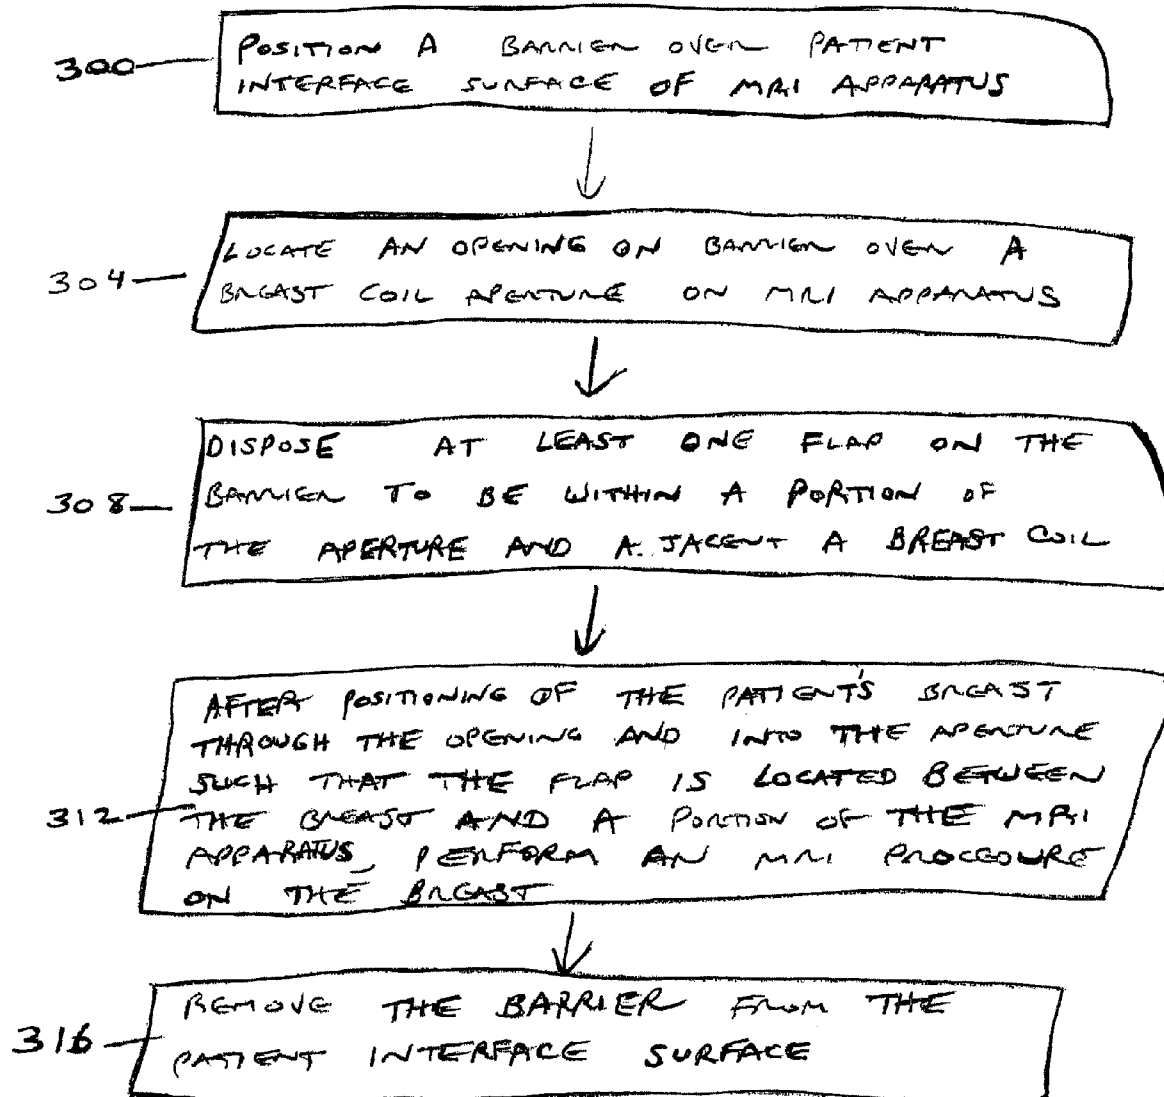 300
POSITION A BARRIER OVER PATIENT
INTERFACE SURFACE OF MRI APPARATUS
304
LOCATE AN OPENING ON BARRIER OVER A
BREAST COIL APERTURE ON MRI APPARATUS
308
DISPOSE AT LEAST ONE FLAP ON THE
BARRIER TO BE WITHIN A PORTION OF
THE APERTURE AND A.JACENT A BREAST COIL
312
AFTER POSITIONING OF THE PATIENT'S BREAST
THROUGH THE OPENING AND INTO THE APERTURE
SUCH THAT THE FLAP IS LOCATED BETWEEN
THE BREAST AND A PORTION OF THE MRI
APPARATUS, PERFORM AN MRI PROCEDURE
ON THE BREAST
316
REMOVE THE BARRIER FROM THE
PATIENT INTERFACE SURFACE